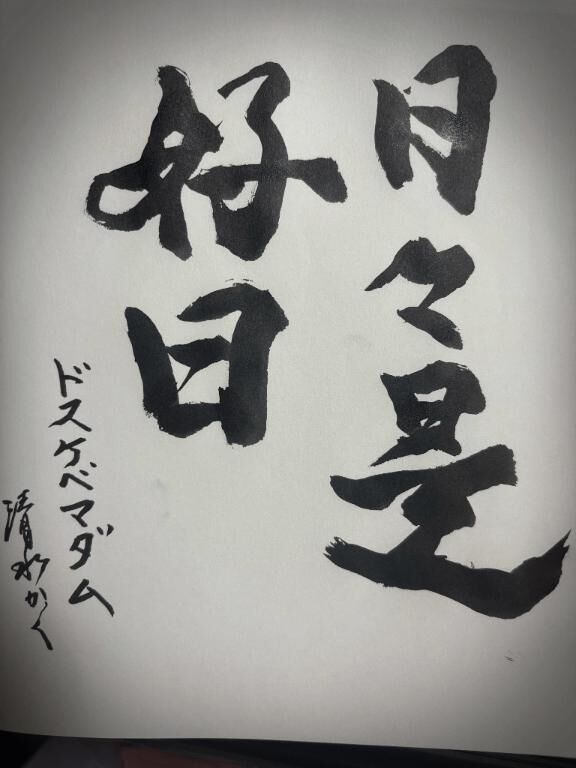 日々是
好日
ドスケベマダム
清水かく